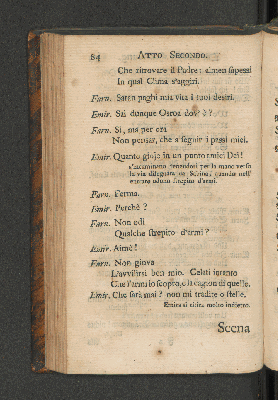 84 ATTO SECONDO.
Che ritrovare il Padre: almen sapessi
In qual Clima s'aggiri.
Farn. Saran paghi mia vita i tuoi desiri.
Emir. Sai dunque Osroa dov' è?
Farn. Sì, ma per ora
Non pensar, che a seguir i passi miei.
Emir. Quanto gioje in un punto miei Dei!
s'incaminano tenendosi per la mano verso
la via disegnata da Sabina; quando nell'
entrare odono strepito d'armi.
Farn. Ferma.
Emir. Perchè?
Farn. Non odi
Qualche strepito d'armi?
Emir. Aimè!
Farn. Non giova
L'avvilirsi ben mio. Celati intanto
Che l'armi io scopro, e la cagion di quelle.
Emir. Che sarà mai? non mi tradite o stelle.
Emira si ritira molto indietro.
Scena